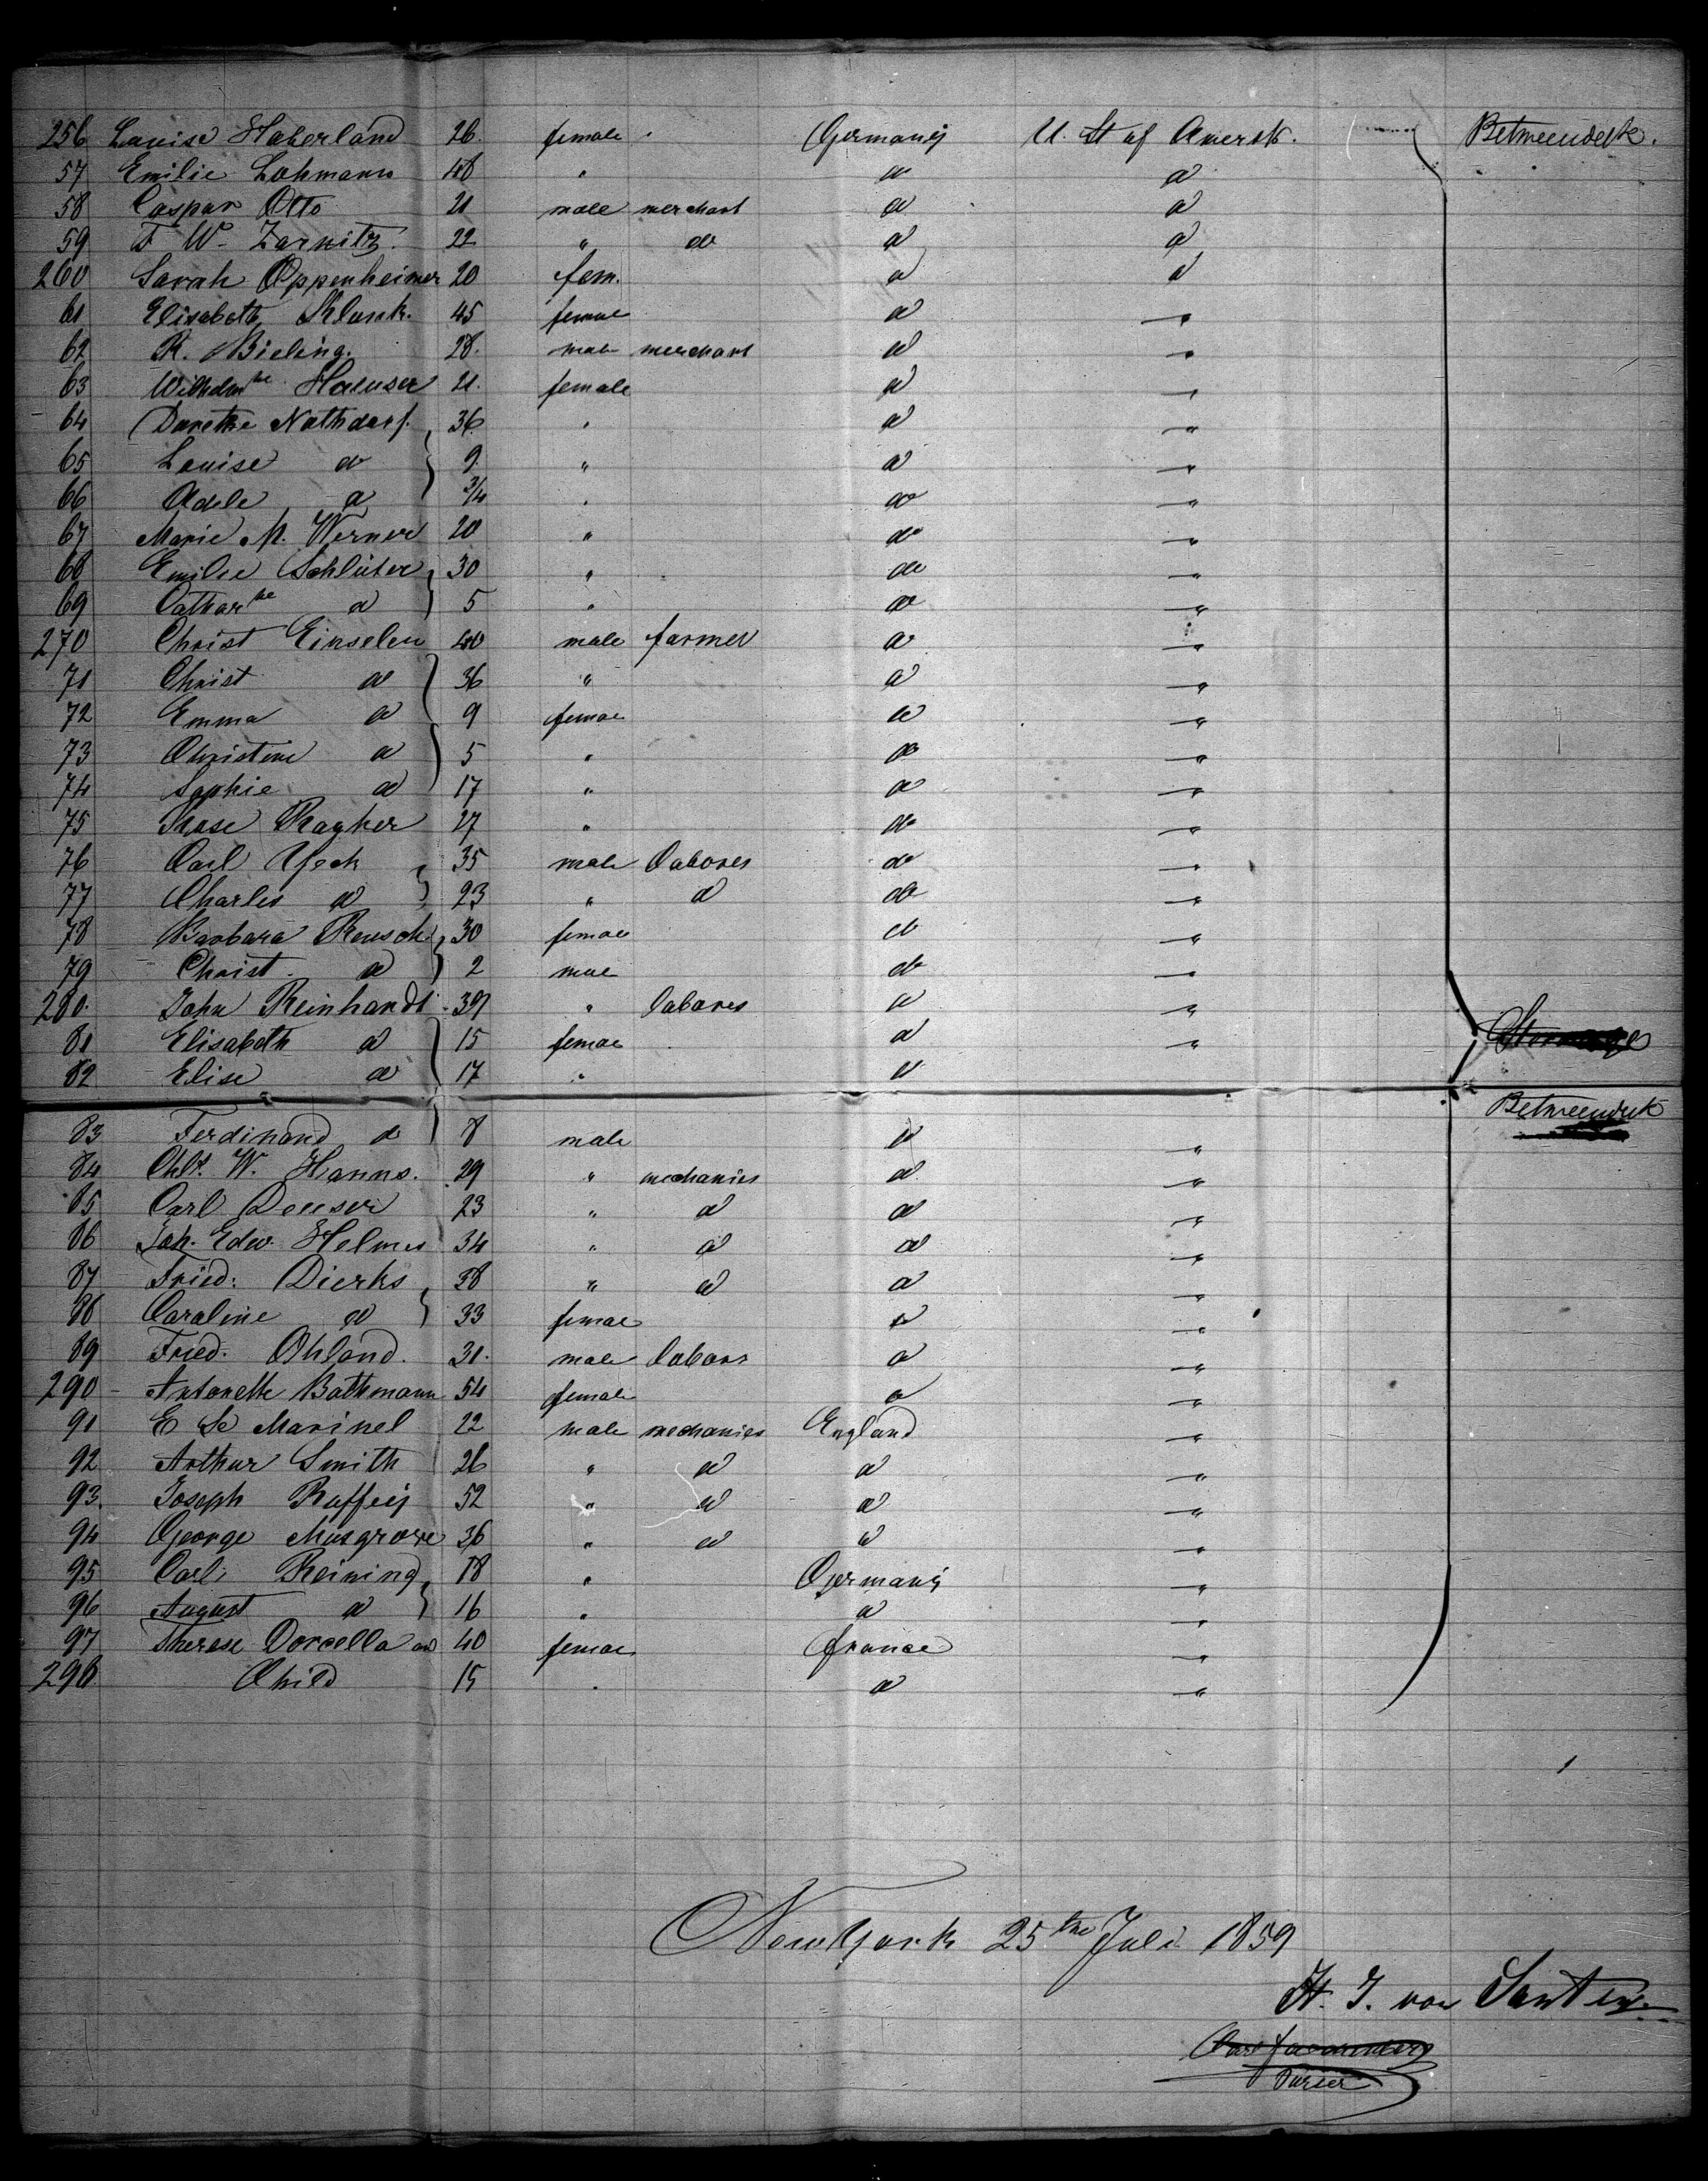 256 Louise Haberland 26. female Germany U. St of Amerik. Betweendeck.
57 Emilie Lohmann 48 " do do
58 Caspar Otto 21 male merchant do do
59 F W. Zarnitz. 22 " do do do
260 Sarah Oppenheimer 20 fem. do do
61 Elisabeth Klunk. 45 female do "
62 R. Bieling. 28. male merchant do "
63 Wilhelm ne Haeuser 21. female do "
64 Dorethe Nothdorf. 36. " do "
65 Louise do 9. " do "
66 Adele do 3/4 " do "
67 Marie M. Werner 20 " do "
68 Emilie Schlüter 30 " do "
69 Cathar ne do 5 " do "
270 Christ Einselen 40 male farmer do "
71 Christ do 36 " do "
72 Emma do 9 female do "
73 Christine do 5 " do "
74 Sophie do 17 " do "
75 Rose 27 " do "
76 Carl 35 male labores do "
77 Charles do 23 " do do "
78 Barbara Reusch 30 female do "
79 Christ. do 2 male do "
280. John Reinhardt 39 " labores do "
81 Elisabeth do 15 female do "
82 Elise do 17 " do
Betweendeck
83 Ferdinand do 8 male do "
84 Chst. W. Hanns. 29 " mechanics do "
85 Carl Deuser 23 " do do "
86 Joh. Edw. Helmes 34 " do do "
87 Fried: Dierks 28 " do do "
88 Caroline do 33 female do "
89 Fried. Ohland. 31. male labors do "
290 Antonette Bathmann 54 female do "
91 E Le Marinel 22 male mechanics England "
92 Arthur Smith 26 " do do "
93. Joseph Raffeij 52 " do do "
94 George Musgrove 36 " do do "
95 Carl Reining 18 " Germany "
96 August do 16 " do "
97 Therese Dorcella and 40 female france "
298. Child 15 " do "
New York 25 the Juli 1859
H. J. von Santen
Purser